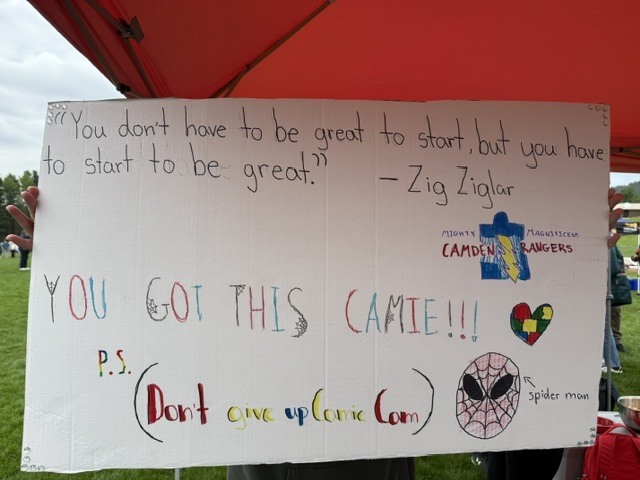 "You don't have to be great to start, but you have
to start to be great."
- Zig Ziglar
MIGHTY MAGNIFICENT
CAMDEN RANGERS
YOU GOT THIS CAMIE!!!
P.S.
(Don't give up Comic Cam)
spider man